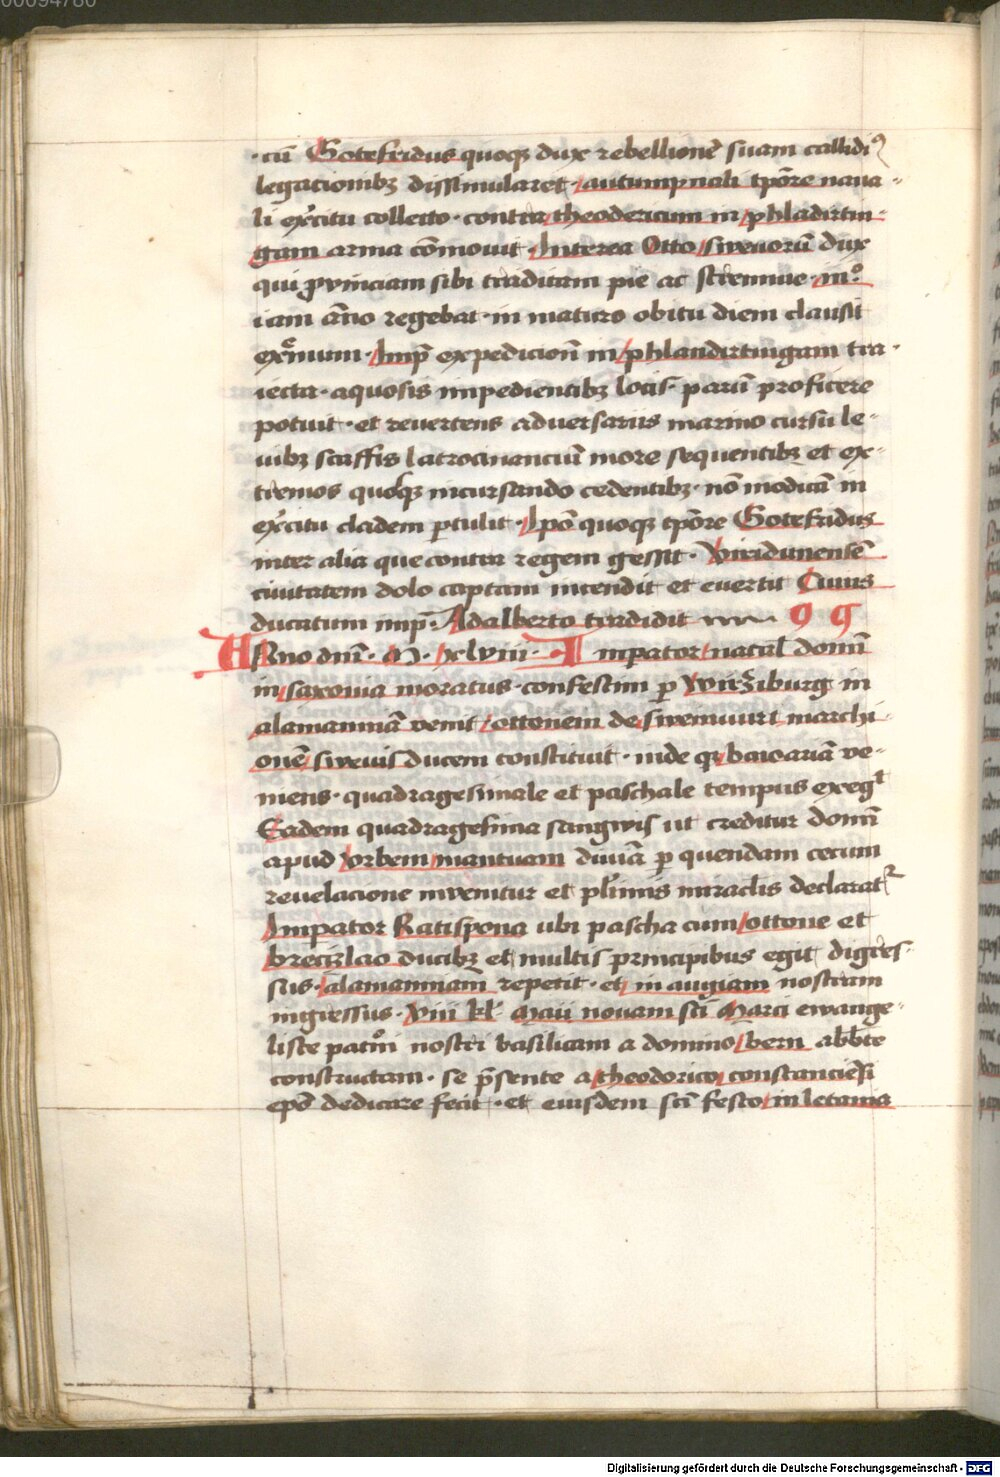 00094780
cū Gotefridus quoqꝫ dux rebellionē suam callidiꝰ
legacionibꝫ dissimularet · autumpnali tp̄ore naua-
li exc̄itu collecto · contra theodericum in phladirtin-
gam arma cōmouit Interea Otto sweuorū dux
qui ꝓuinciam sibi traditam pie ac strennue · iiiº
iam āno regebat · in maturo obitu diem clausit
extͤmum · Imp̄ expedicionē in phlandirtingam tra-
iecta · aquosis impedientibꝫ locis · parū proficere
potuit · et reuertens aduersariis marino cursu le-
uibꝫ scaffis latrocinanciū more sequentibꝫ et ex-
tremos quoqꝫ incursando cedentibꝫ · nō modicā in
exc̄itu cladem ꝑtulit · Ip̄o quoqꝫ tp̄ore Gotefridus
inter alia que contra regem gessit · Viridunensē
ciuitatem dolo captam incendit et euertit Cuius
ducatum imp̄ · Adalberto tradidit
Anno dn̄i · M · xlviii · Impator natal̄ domī
in saxonia moratus · confestim ꝑ wirziburg in
alamanniā venit ottonem de swewurt marchi-
onē sweuis ducem constituit · inde qꝫ baioariā ve-
niens · quadragesimale et paschale tempus exegᵗ
Eadem quadragesima sangwis ut creditur domī
apud vrbem mantuam diuīa ꝑ quendam cecum
reuelacione inuenitur et pl̄imis miraclis declaratᷣ
Impator Ratispona ubi pascha cum ottone et
brecizlao ducibꝫ et multis principibus egit digres-
sus · alamanniam repetit · et in augiam nostram
ingressus · viii kl̄ maii nouam sc̄i Marci ewange-
liste patͦni nostri basilicam a domino bern abb̄te
constructam · se p̄sente a theodorico constanciēsi
ep̄o dedicare fecit · et eiusdem sc̄i festo in letania
Digitalisierung gefördert durch die Deutsche Forschungsgemeinschaft - DFG